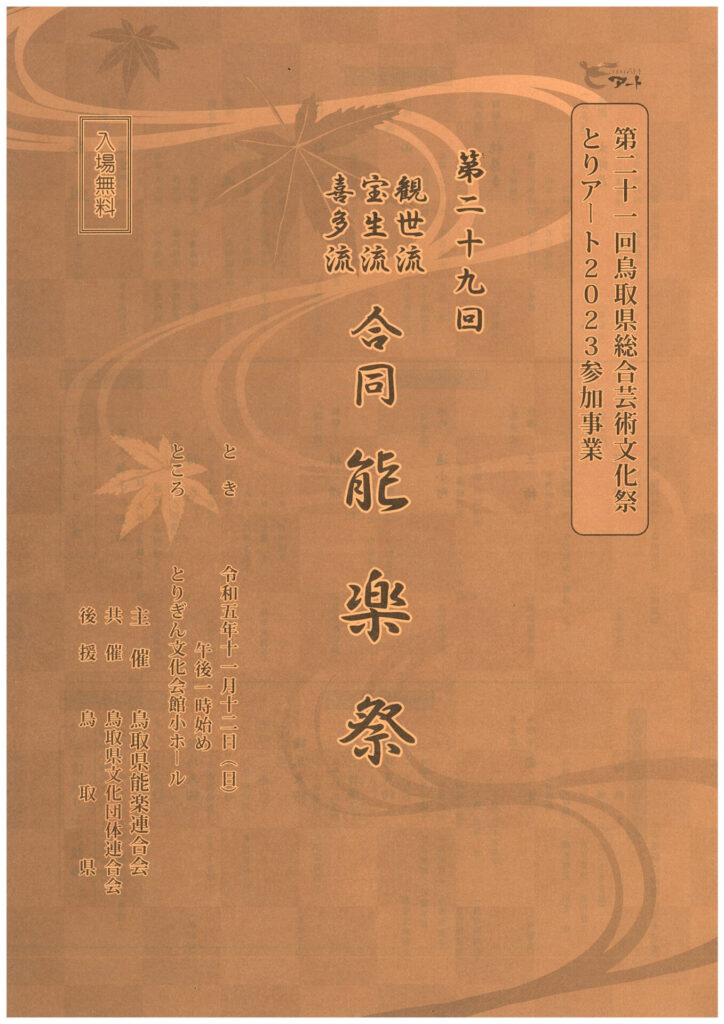 とりアート
第二十一回鳥取県総合芸術文化祭
とりアート2023参加事業
第二十九回
観世流
宝生流
喜多流
合同能楽祭
とき 令和五年十一月十二日(日)
午後一時始め
ところ とりぎん文化会館小ホール
主催 鳥取県能楽連合会
共催 鳥取県文化団体連合会
後援 鳥取県
入場無料